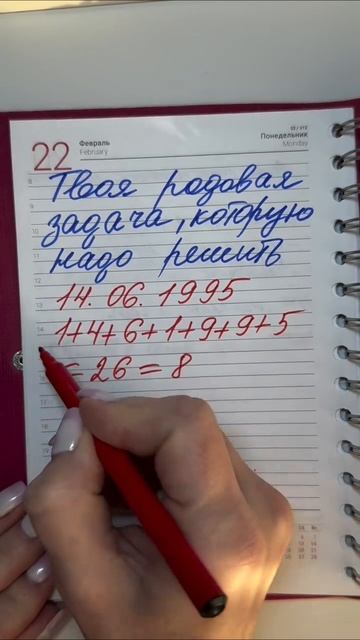 22
Февраль
February
Понедельник
Monday
Твоя родовая
задача, которую
надо решить
14. 06. 1995
1+4+6+1+9+9+5
= 26 = 8